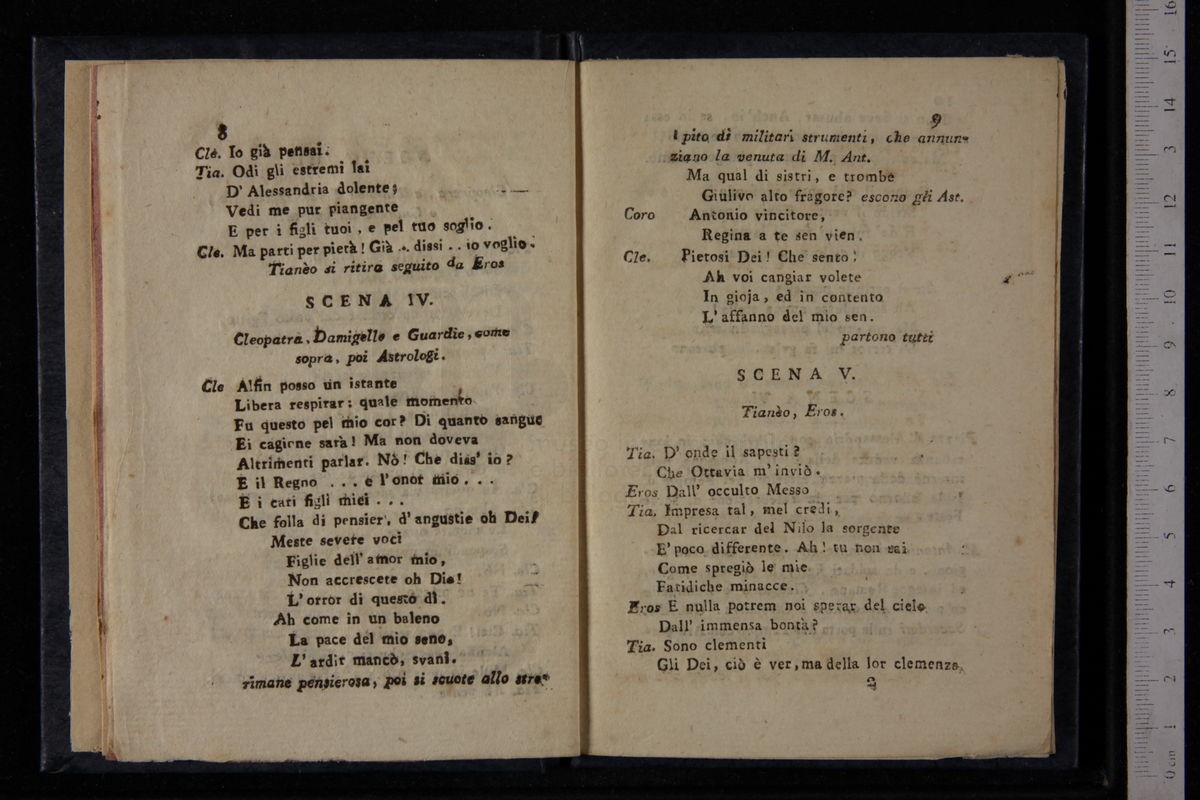 8
Cle. Io già pensai.
Tia. Odi gli estremi lai
D' Alessandria dolente;
Vedi me pur piangente
E per i figli tuoi, e pel tuo soglio.
Cle. Ma parti per pietà! Già .. dissi .. io voglio.
Tianèo si ritira seguito da Eros
SCENA IV.
Cleopatra, Damigelle e Guardie, come
sopra, poi Astrologi.
Cle Alfin posso un istante
Libera respirar: quale momento
Fu questo pel mio cor? Di quanto sangue
Ei cagione sarà! Ma non doveva
Altrimenti parlar. Nò! Che diss' io?
E il Regno ... e l'onor mio ...
E i cari figli miei ...
Che folla di pensier', d'angustie oh Dei!
Meste severe voci
Figlie dell' amor mio,
Non accrescete oh Dio!
L'orror di questo dì.
Ah come in un baleno
La pace del mio seno,
L'ardir mancò, svanì.
rimane pensierosa, poi si scuote allo stre-
9
pito di militari strumenti, che annun-
ziano la venuta di M. Ant.
Ma qual di sistri, e trombe
Giulivo alto fragore? escono gli Ast.
Coro Antonio vincitore,
Regina a te sen vien.
Cle. Pietosi Dei! Che sento!
Ah voi cangiar volete
In gioja, ed in contento
L'affanno del mio sen.
partono tutti
SCENA V.
Tianèo, Eros.
Tia. D' onde il sapesti?
Che Ottavia m'inviò.
Eros Dall' occulto Messo
Tia. Impresa tal, mel credi,
Dal ricercar del Nilo la sorgente
E' poco differente. Ah! tu non sai
Come spregiò le mie
Fatidiche minacce.
Eros E nulla potrem noi sperar del cielo
Dall' immensa bontà?
Tia. Sono clementi
Gli Dei, ciò è ver, ma della lor clemenza,
2
0 cm 1 2 3 4 5 6 7 8 9 10 11 12 13 14 15 16